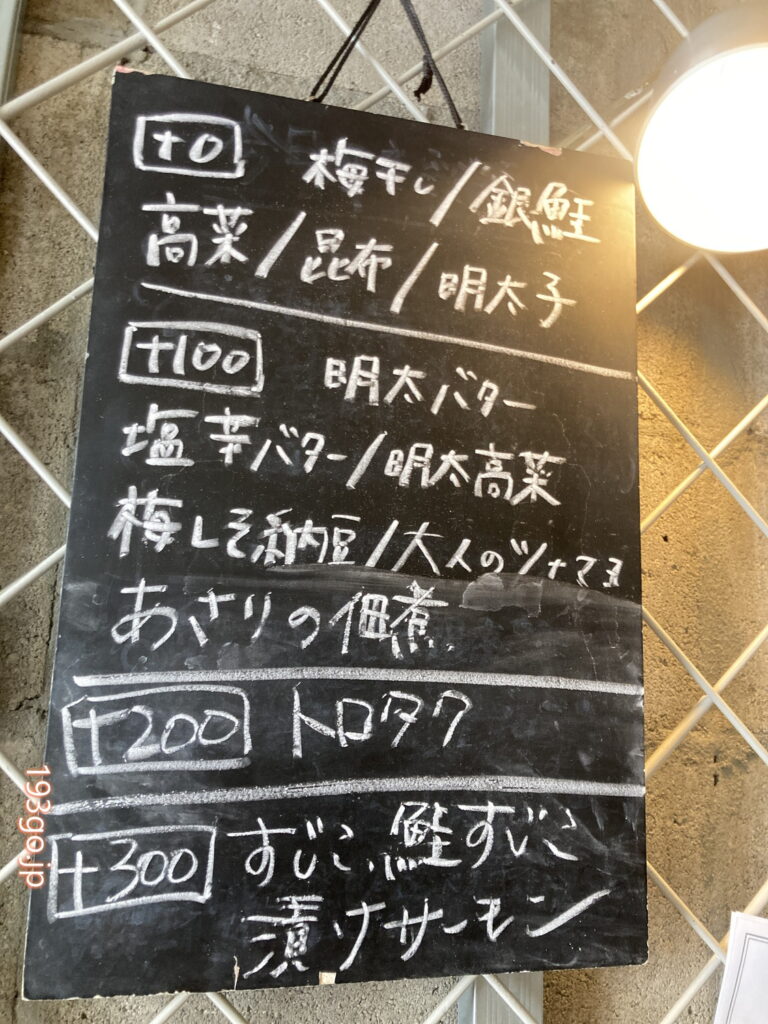 +0 梅干し/銀鮭
高菜/昆布/明太子
+100 明太バター
塩辛バター/明太高菜
梅しそ納豆/大人のツナマヨ
あさりの佃煮
+200 トロタク
+300 すじこ、鮭すじこ
漬けサーモン
193go.jp